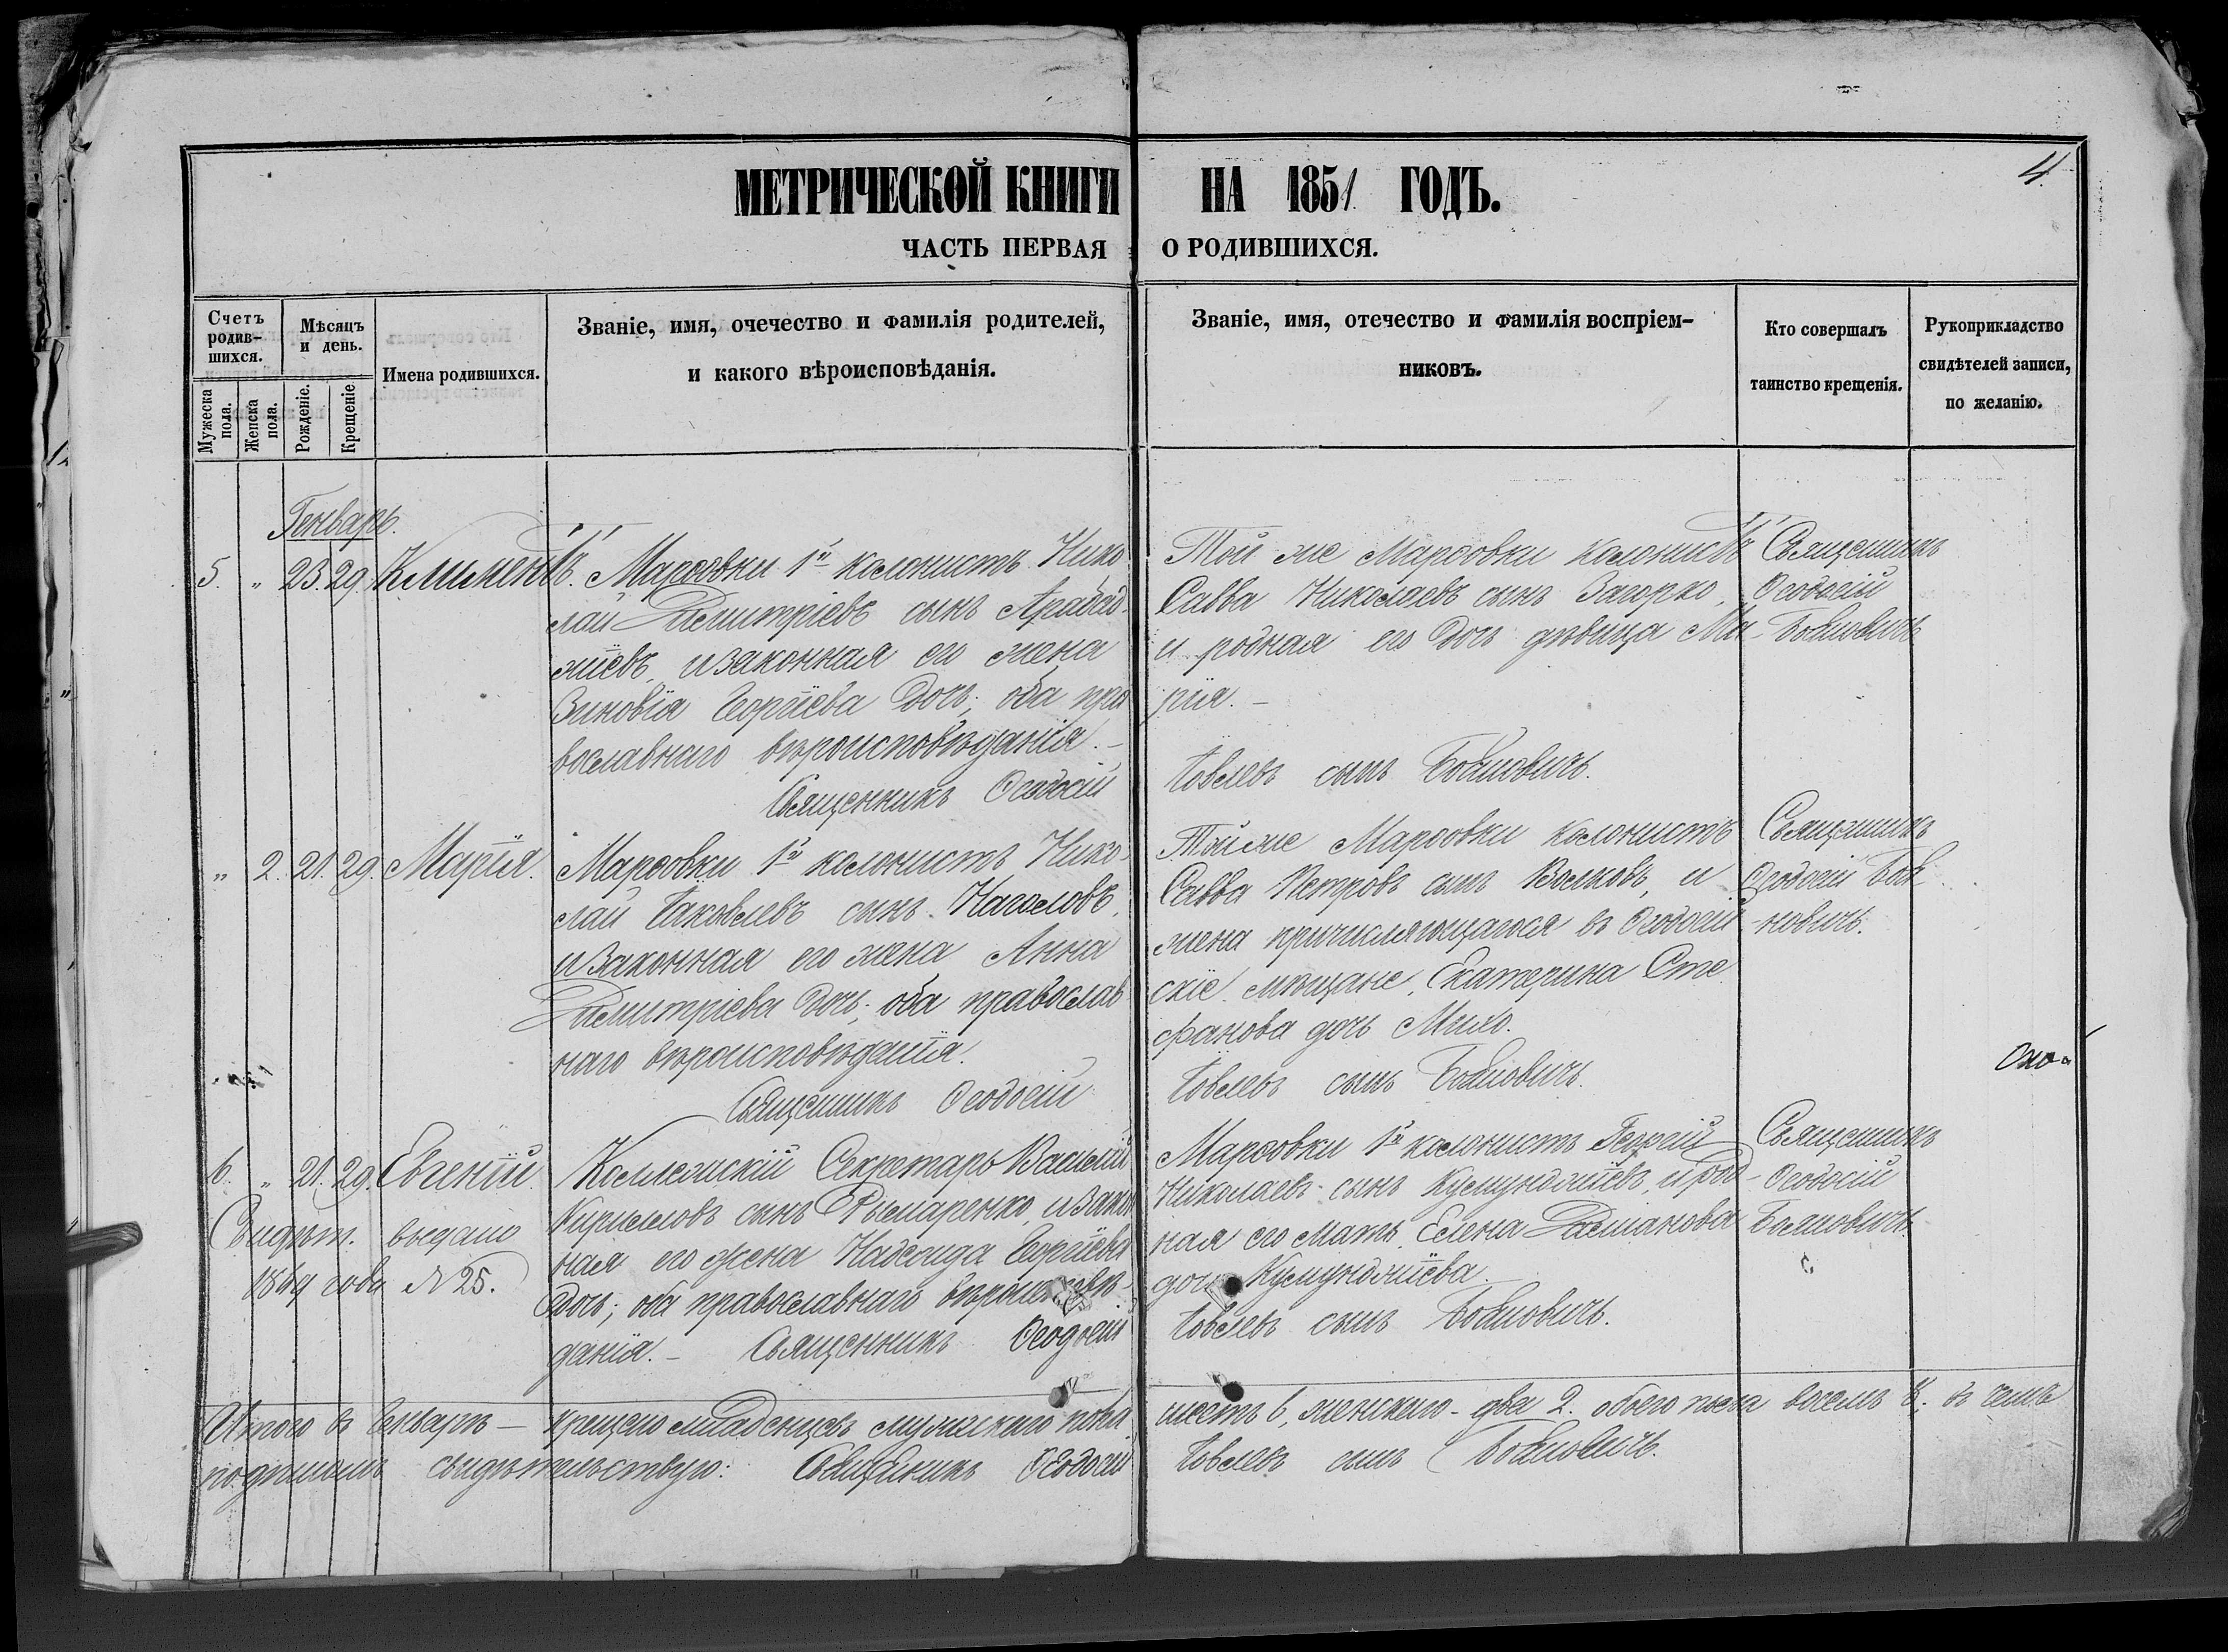 4.
МЕТРИЧЕСКОЙ КНИГИ НА 1851 ГОДЪ.
ЧАСТЬ ПЕРВАЯ О РОДИВШИХСЯ.
Счетъ родив-
шихся.
Мужеска пола.
Женска пола.
Мѣсяцъ и день.
Рожденіе.
Крещеніе
Имена родившихся.
Званіе, имя, очечество и фамилія родителей,
и какого вѣроисповѣданія.
Званіе, имя, отечество и фамилія воспріем-
никовъ.
Кто совершалъ
таинство крещенія.
Рукоприкладство
свидѣтелей записи,
по желанію.
Генварь.
5. " 23. 29. Климентъ.
Марфовки 1й колонистъ Нико-
лай Димитріевъ сынъ Арабад-
жіевъ, и законная его жена
Зиновія Георгіева дочь; оба пра
вославнаго вѣроисповѣданія. –
Священникъ Ѳеодосій
Той же Марфовки колонистъ
Савва Николаевъ сынъ Загорко,
и родная его дочь дѣвица Ма-
рія. –
Іовлевъ сынъ Бояновичъ.
Священникъ
Ѳеодосій
Бояновичъ
" 2. 21. 29. Марія.
Марфовки 1й колонистъ Нико-
лай Іаковлевъ сынъ Наголовъ,
и законная его жена Анна
Димитріева дочь; оба православ
наго вѣроисповѣданія.
Священникъ Ѳеодосій
Той же Марфовки колонистъ
Савва Петровъ сынъ Волковъ, и
жена причисляющагося въ Ѳеодосій
скіе мѣщане, Екатерина Сте
фанова дочь
Іовлевъ сынъ Бояновичъ.
Священникъ
Ѳеодосій Боя
новичъ.
6. " 21. 29. Евгеній.
Свидѣт. выдано
1869 года N 25.
Коллежскій Секретарь Василій
Кирилловъ сынъ Рымаренко, и закон
ная его жена Надежда Георгіева
дочь; оба православнаго вѣроисповѣ-
данія. – Священникъ Ѳеодосій
Марфовки 1й колонистъ Георгій
Николаевъ сынъ Куюмунджіевъ, и род-
ная его мать, Елена Даміанова
дочь Куюмунджіева.
Іовлевъ сынъ Бояновичъ.
Священникъ
Ѳеодосій
Бояновичъ.
Итого въ Генварѣ – крещено младенцевъ мужескаго пола шесть 6, женскаго – два 2. обоего пола восемь 8; въ чемъ
подписомъ свидѣтельствую: Священникъ Ѳеодосій Іовлевъ сынъ Бояновичъ.